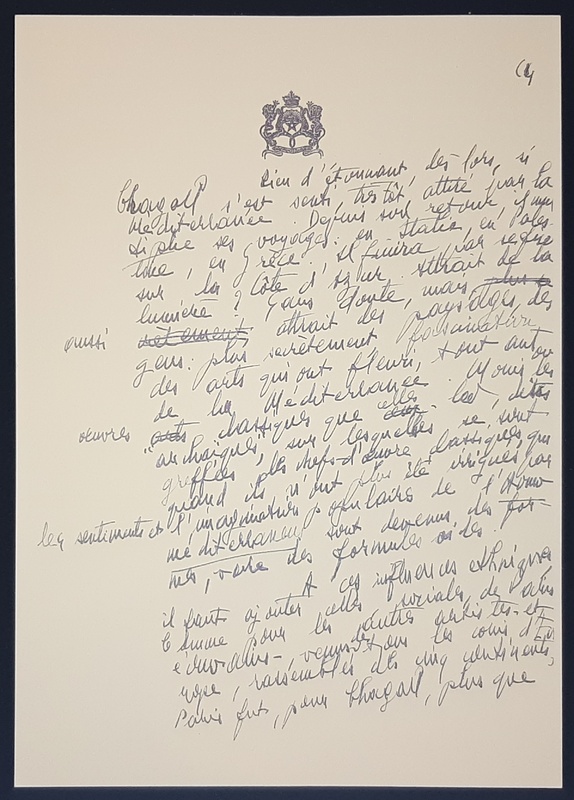 (4
Rien d'étonnant, dès lors, si
Chagall s'est senti, très tôt, attiré par la
Méditerranée. Depuis son retour, il mul
tiplie ses voyages: en Italie, en Pales-
tine, en Grèce. Il finira par se fixer
sur la Côte d'Azur. Attrait de la
lumière? Sans doute, mais plus
aussi nettement attrait des paysages, des
gens: plus secrètement fascination
des arts qui ont fleuri, tout autour
de la Méditerranée. Moins les
œuvres arts classiques que celles-là, dites
"archaïques", sur lesquelles se sont
greffées les chefs-d'œuvre classiques, qui
quand ils n'ont plus été irrigués par
les sentiments et l'imagination populaire de l'Homme
méditerranéen, sont devenus des for-
mes, voire des formules vides.
A ces influences ethniques
il faut ajouter celles, sociales, de Paris
Comme pour les autres artistes et
écrivains venus de tous les coins d'Eu
rope, rassemblés des cinq continents,
Paris fut, pour Chagall, plus que